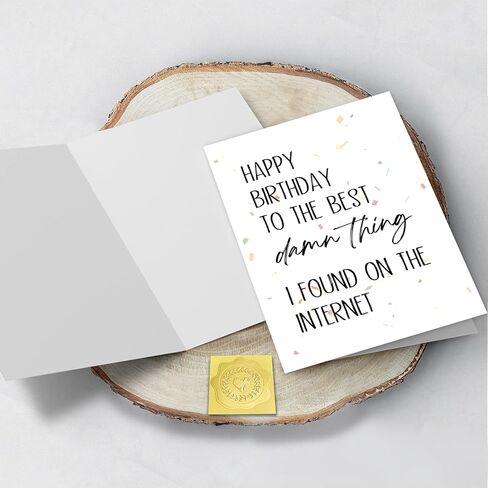 HAPPY
BIRTHDAY
TO THE BEST
damn thing
I FOUND ON THE
INTERNET